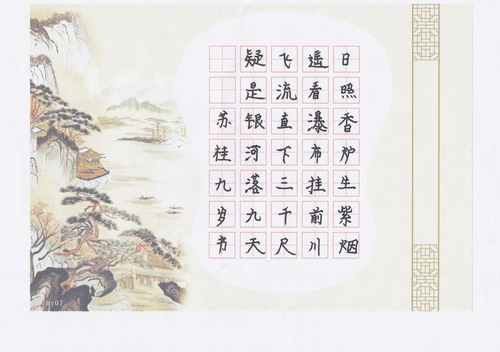 日照香炉生紫烟
遥看瀑布挂前川
飞流直下三千尺
疑是银河落九天
苏桂九岁书